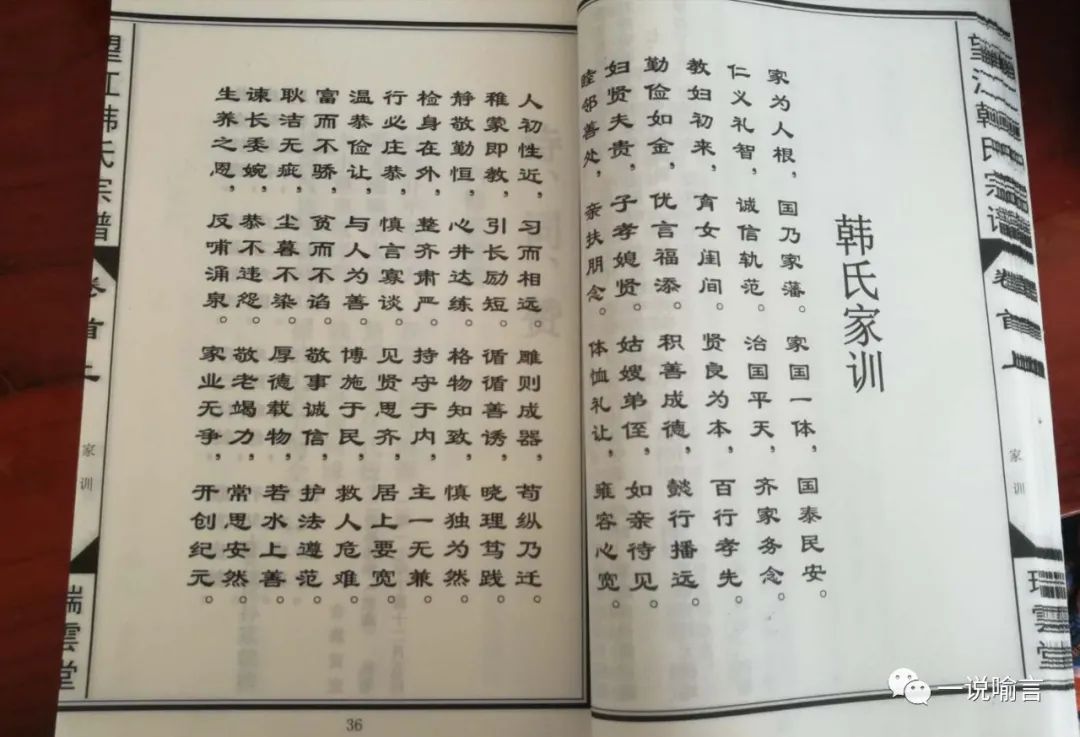 望江韩氏宗谱
卷首上
家训
瑞雲堂
韩氏家训
家为人根，国乃家藩。家国一体，国泰民安。
仁义礼智，诚信轨范。治国平天，齐家务念。
教妇初来，育女闺间。贤良为本，百行孝先。
勤俭如金，优言福添。积善成德，懿行播远。
妇贤夫贵，子孝媳贤。姑嫂弟侄，如亲待见。
睦邻善处，亲扶朋念。体恤礼让，雍容心宽。
人初性近，习而相远。雕则成器，苟纵乃迁。
稚蒙即教，引长励短。循循善诱，晓理笃践。
静敬勤恒，心井达练。格物知致，慎独为然。
检身在外，整齐肃严。持守于内，主一无兼。
行必庄恭，慎言寡谈。见贤思齐，居上要宽。
温恭俭让，与人为善。博施于民，救人危难。
富而不骄，贫而不谄。敬事诚信，护法遵范。
耿洁无疵，尘暮不染。厚德载物，若水上善。
谏长委婉，恭不违怨。敬老竭力，常思安然。
生养之恩，反哺涌泉。家业无争，开创纪元。
望江韩氏宗譜
卷首上
家训
瑞雲堂
36
一说喻言